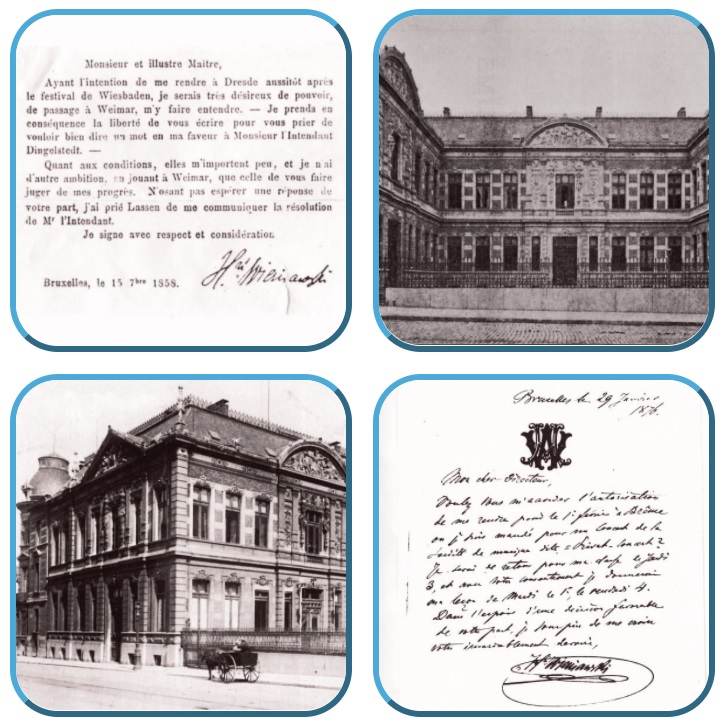 Monsieur et illustre Maître,
Ayant l'intention de me rendre à Dresde aussitôt après
le festival de Wiesbaden, je serais très désireux de pouvoir,
de passage à Weimar, m'y faire entendre. — Je prends en
conséquence la liberté de vous écrire pour vous prier de
vouloir bien dire un mot en ma faveur à Monsieur l'Intendant
Dingelstedt. —
Quant aux conditions, elles m'importent peu, et je n'ai
d'autre ambition, en jouant à Weimar, que celle de vous faire
juger de mes progrès. N'osant pas espérer une réponse de
votre part, j'ai prié Lassen de me communiquer la résolution
de Mr l'Intendant.
Je signe avec respect et considération
Bruxelles, le 15 7bre 1858.
Hri Wieniawski
Bruxelles le 29 Janvier
187
W
Mon cher Directeur,
Voulez vous m'accorder l'autorisation
de me rendre pour le
on je suis mandé pour un Concert de la
Société de musique dite « Privat-Concert »
Je serai de retour pour ma classe le Jeudi
3, et avec votre consentement je donnerai
ma leçon de Mardi le 1er, le vendredi 4.
Dans l'espoir d'une décision favorable
de votre part, je vous prie de me croire
votre
Hri Wieniawski